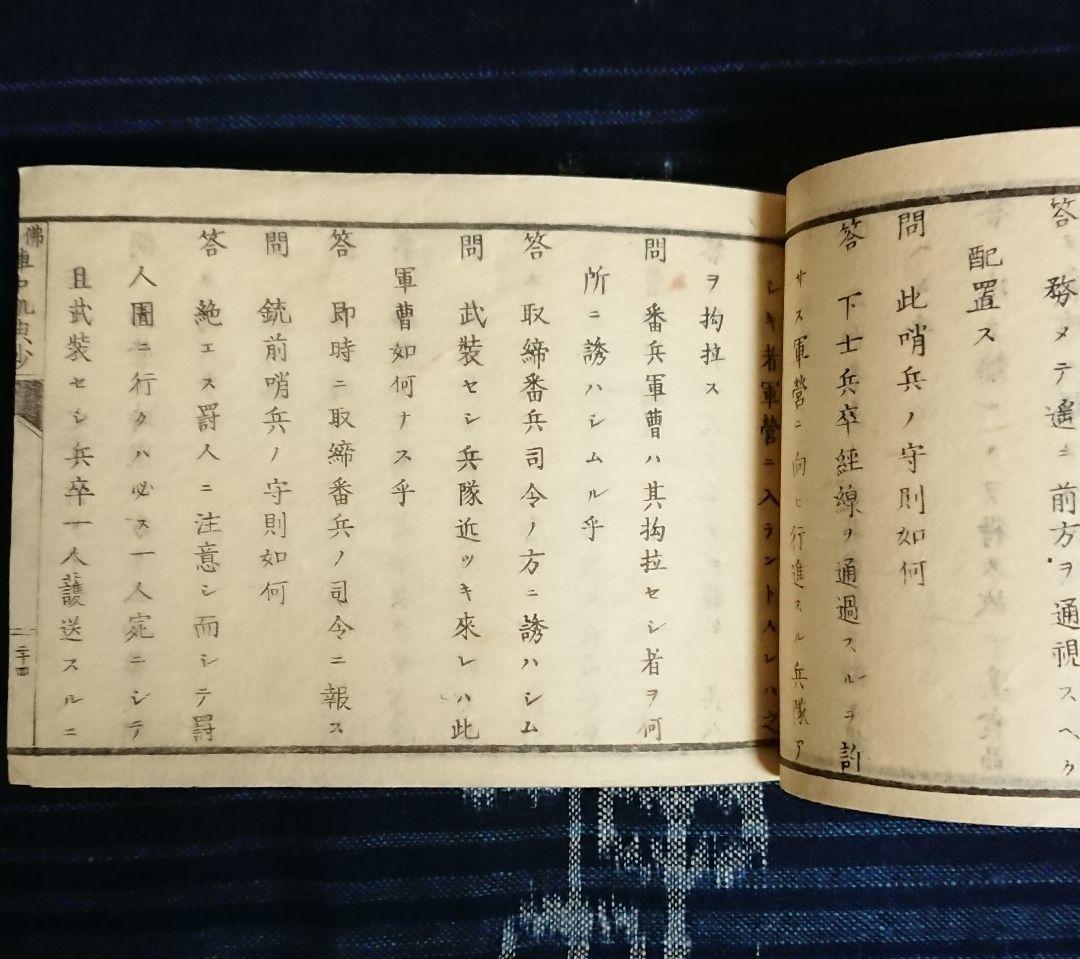 答 務メテ遙ニ前方ヲ通視スヘク
配置ス
問 此哨兵ノ守則如何
答 下士兵卒経線ヲ通過スルヲ許
サス軍營ニ向ヒ行進スル兵隊ア
レキ者軍營ニ入ラント人レハ之
ヲ拘拉ス
問 番兵軍曹ハ其拘拉セシ者ヲ何
所ニ誘ハシムル乎
答 取締番兵司令ノ方ニ誘ハシム
問 武裝セシ兵隊近ツキ來レハ此
軍曹如何ナス乎
答 即時ニ取締番兵ノ司令ニ報ス
問 銃前哨兵ノ守則如何
答 絶エス罸人ニ注意シ而シテ罸
人圊ニ行クハ必ス一人宛ニシテ
且武裝セシ兵卒一人護送スルニ
佛
二十四